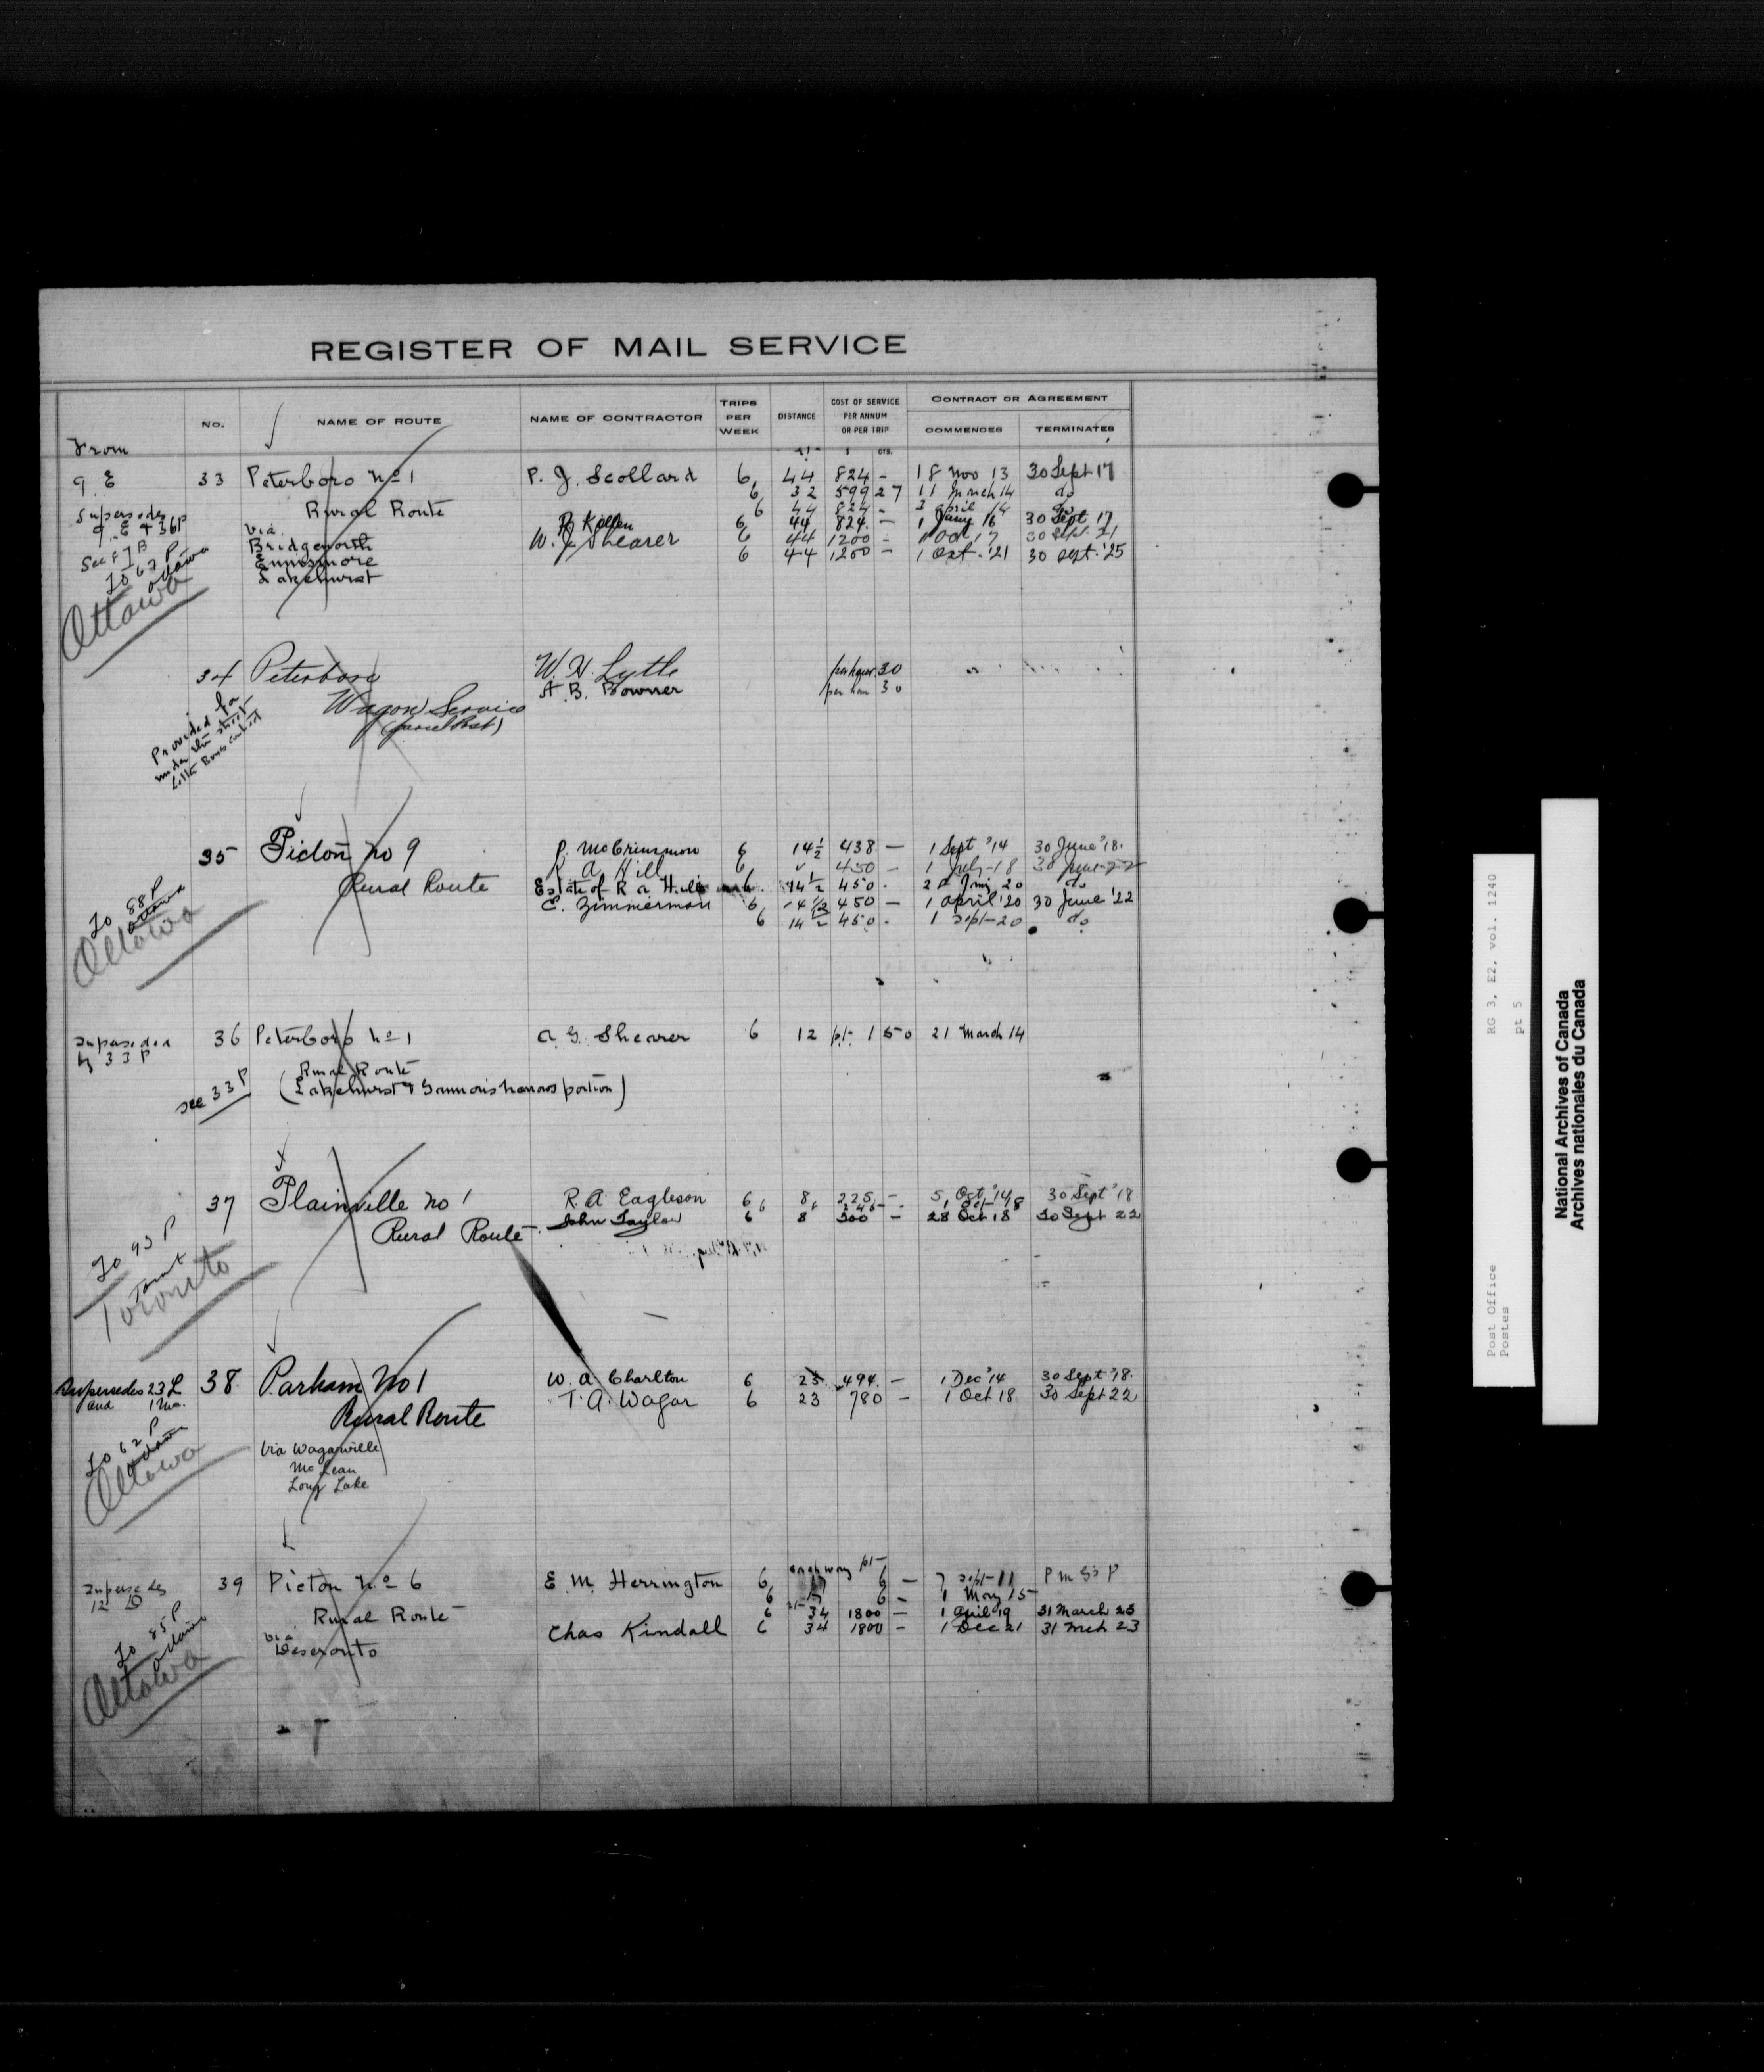 REGISTER OF MAIL SERVICE
From
No.
NAME OF ROUTE
NAME OF CONTRACTOR
TRIPS PER WEEK
DISTANCE
COST OF SERVICE PER ANNUM OR PER TRIP
$ CTS.
CONTRACT OR AGREEMENT
COMMENCES
TERMINATES
9 E 33 Peterboro No 1 P. J. Scollard 6 44 824 - 18 Nov 13 30 Sept 17
6 32 599 27 11 March 14 do
Supersedes Rural Route 6 44 824 - 3 April 14 do
9 E & 36P via 6 44 824 - 1 Jany 16 30 Sept 17
Bridgenorth W. J. Shearer 6 44 1200 - 1 Oct 17 30 Sept. 21
Ennismore 6 44 1200 - 1 Oct. '21 30 Sept. '25
Lakehurst
To 67 P
Ottawa
Ottawa
34 Peterboro W. H. Lytle per hour 30
A. B. Downer per hour 30
Wagon Service
(Parcel Post)
Provided for
under the street
Letter Box contract
35 Picton No 9 P. McCrimmon 6 14½ 438 - 1 Sept '14 30 June '18.
R A Hill 6 450 - 1 July-18 30 June 22
Rural Route Estate of R A Hill 6 14½ 450 - 20 Jany 20 do
E. Zimmerman 6 14½ 450 - 1 April '20 30 June '22
6 14½ 450 - 1 Sept-20 do
To 88 P
Ottawa
Ottawa
Superseded 36 Peterboro No 1 A. G. Shearer 6 12 p.t. 1 50 21 March 14
by 33 P
Rural Route
see 33 P (Lakehurst & portion)
37 Plainville No 1 R. A. Eagleson 6 8 225 - 5 Oct. '14 30 Sept '18
Rural Route John Taylor 6 8 300 - 28 Oct 18 30 Sept 22
To 93 P
Toront
Toronto
Supersedes 23 L 38 Parham No 1 W. A. Charlton 6 23 494. - 1 Dec '14 30 Sept '18.
and T. A. Wagar 6 23 780 - 1 Oct 18 30 Sept 22
Rural Route
To 62 P
Ottawa
Ottawa
Via Wagarville
McLean
Long Lake
each way pt
Supersedes 39 Picton No 6 E. M. Herrington 6 17 6 - 7 Sept-11 P M G's P
12 D 6 17 6 - 1 May 15
Rural Route 6 34 1800 - 1 April 19 31 March 23
via Chas Kindall 6 34 1800 - 1 Dec 21 31 Mch 23
Deseronto
To 85 P
Ottawa
Ottawa
Post Office
Postes
RG 3, E2, vol. 1240
pt 5
National Archives of Canada
Archives nationales du Canada